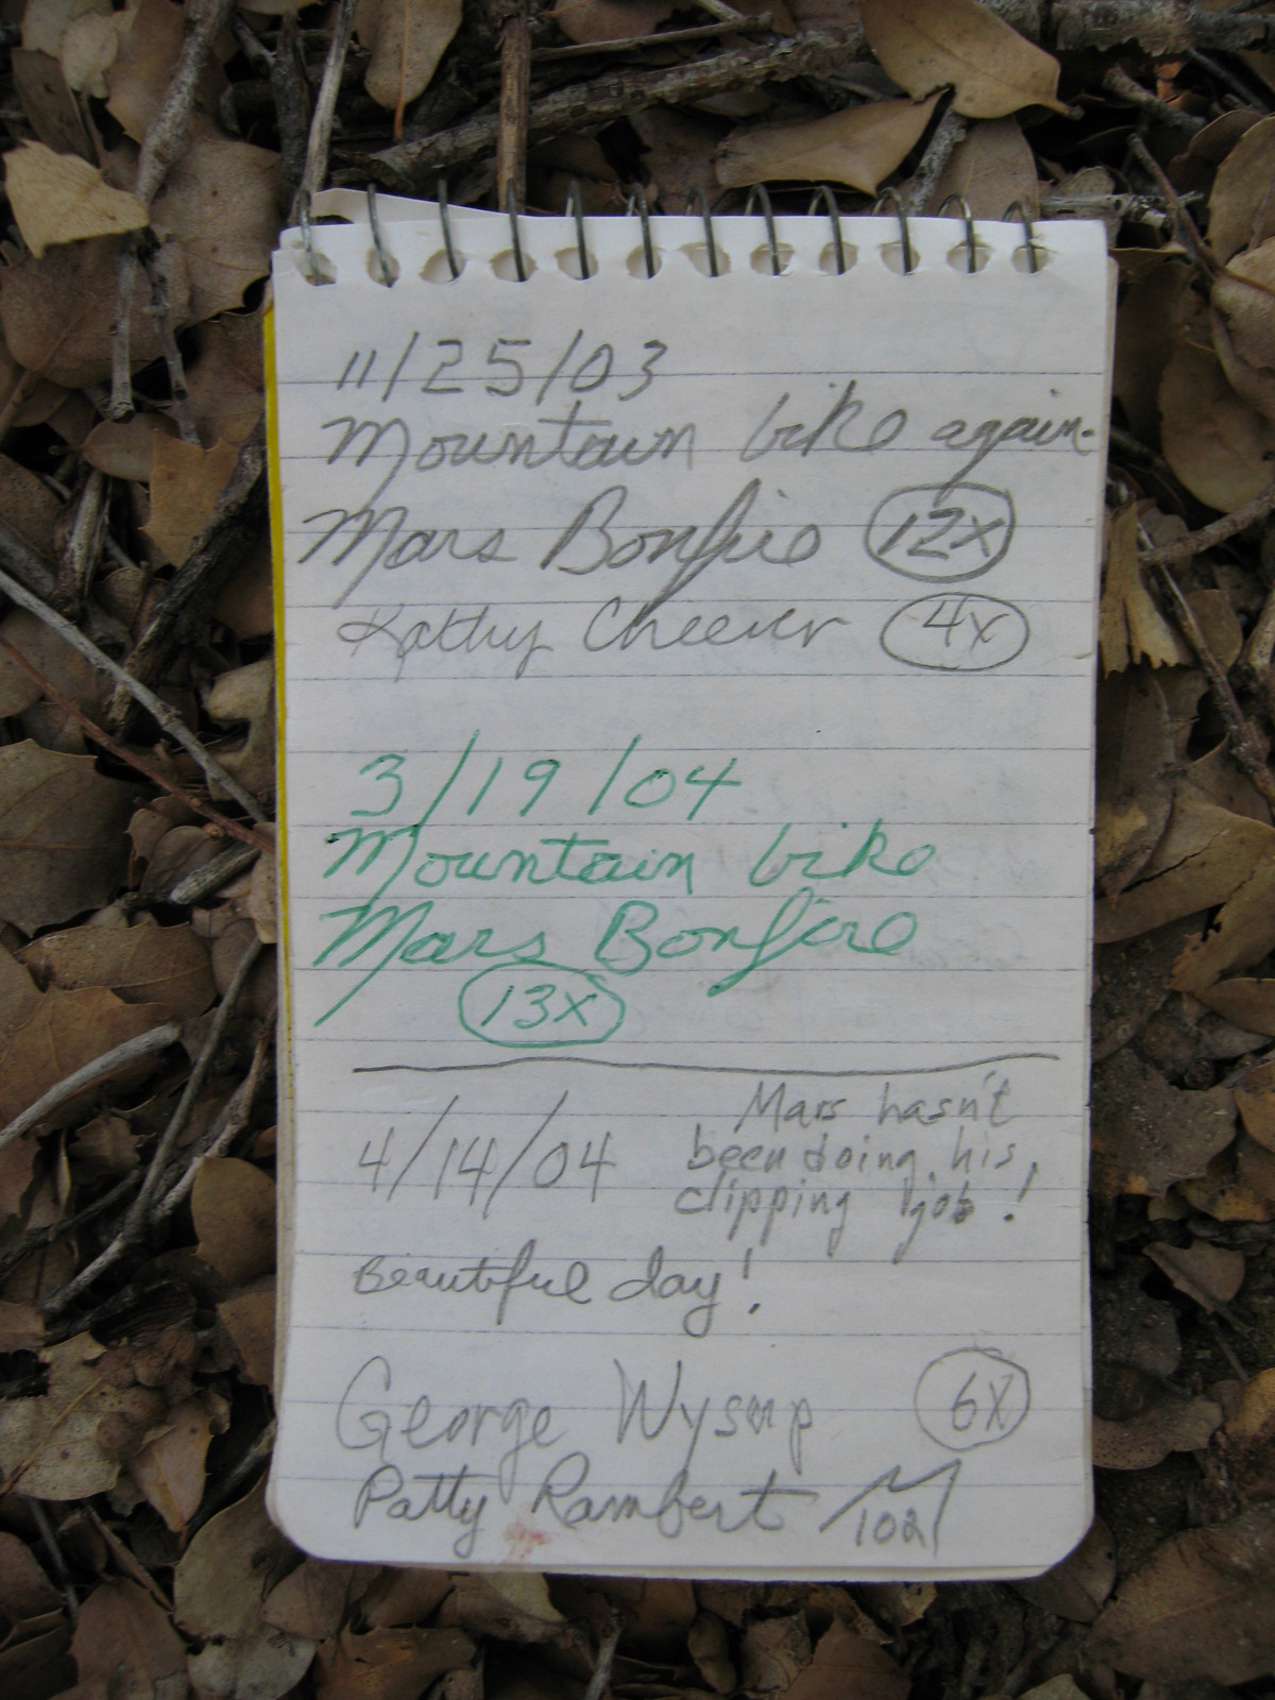 11/25/03
Mountain bike again.
Mars Bonfire 12x
Kathy Cheever 4x
3/19/04
Mountain bike
Mars Bonfire
13x
4/14/04
Mars hasn't
been doing his
clipping job!
Beautiful day!
George Wysup 6X
Patty Rambert 102